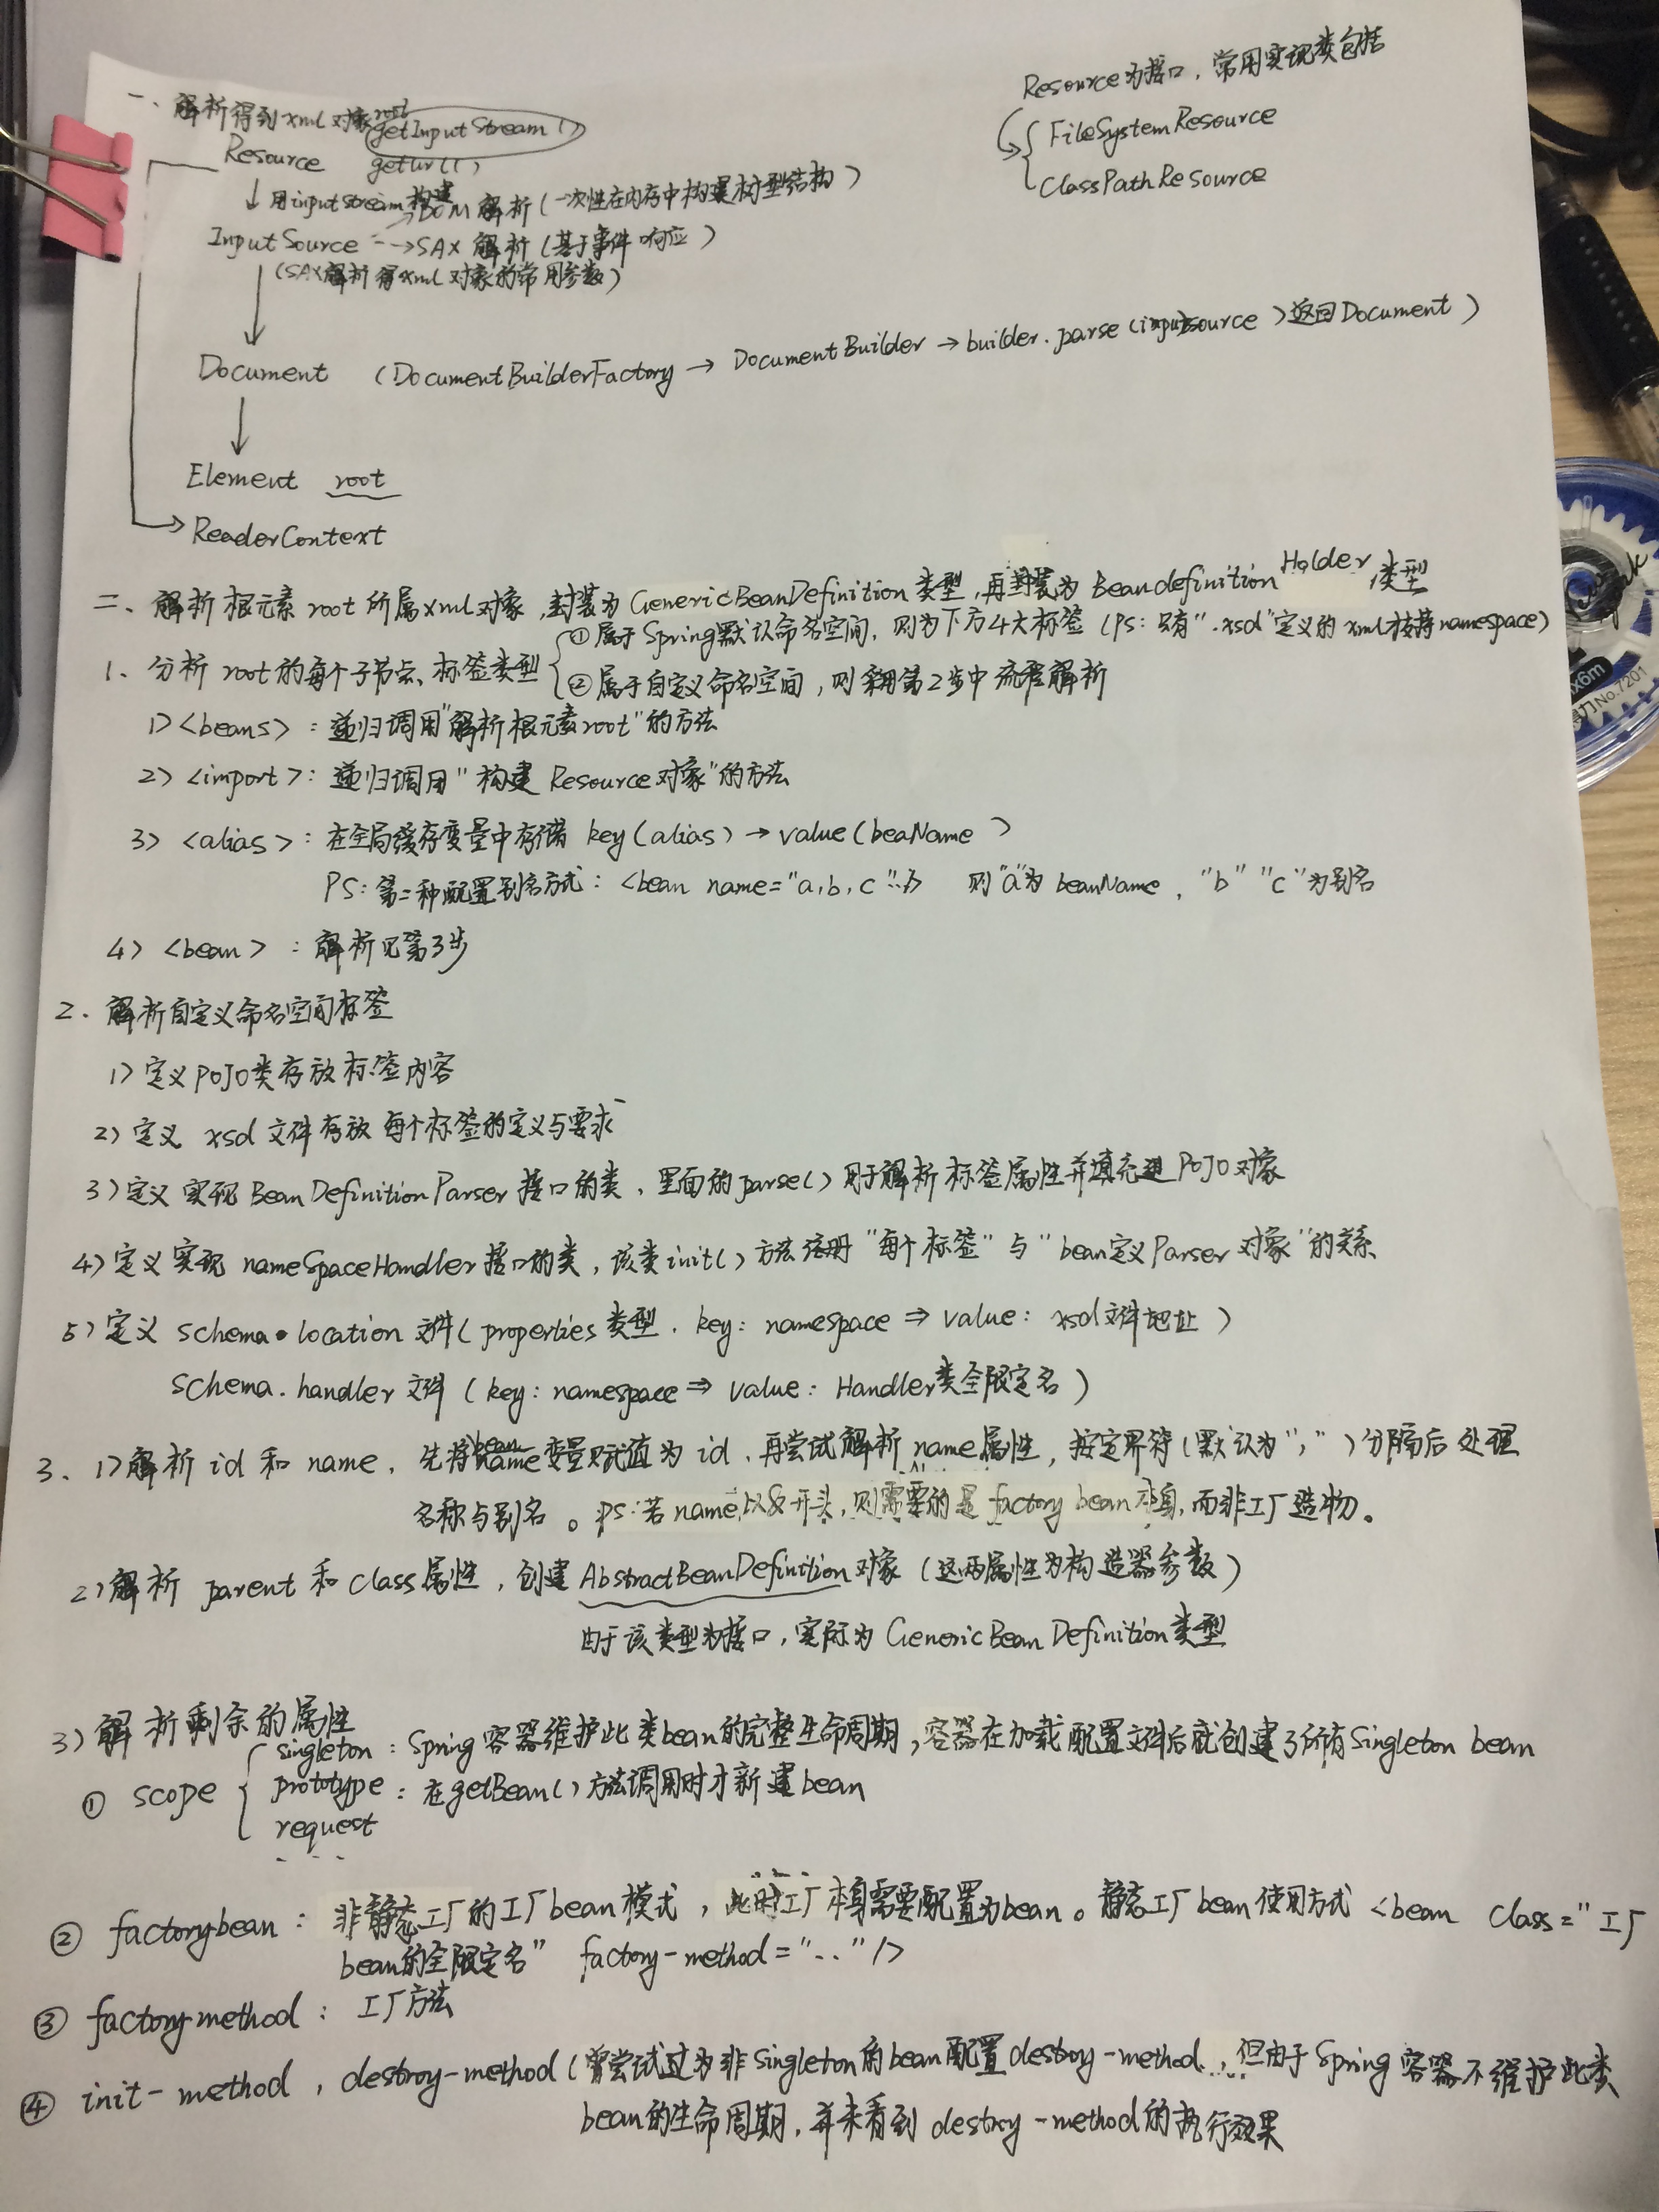 一、解析得到xml对象root
getInputStream()
Resource geturl()
Resource为接口，常用实现类包括
FileSystemResource
ClassPathResource
用inputstream构建
DOM解析(一次性在内存中构建树型结构)
InputSource --→SAX解析(基于事件响应)
(SAX解析得xml对象的常用参数)
Document (DocumentBuilderFactory → DocumentBuilder → builder.parse(inputsource)返回Document)
Element root
ReaderContext
二、解析根元素root所属xml对象,封装为GenericBeanDefinition类型,再封装为BeandefinitionHolder类型
①属于Spring默认命名空间，则为下方4大标签(PS:只有".xsd"定义的xml支持namespace)
1、分析root的每个子节点、标签类型
②属于自定义命名空间，则采用第2步中流程解析
1)<beans>：递归调用"解析根元素root"的方法
2)<import>：递归调用"构建Resource对象"的方法
3)<alias>：在全局缓存变量中存储 key(alias)→value(beaName)
PS:第二种配置别名方式：<bean name="a,b,c"../> 则"a"为beanName，"b""c"为别名
4)<bean>：解析见第3步
2、解析自定义命名空间标签
1)定义POJO类存放标签内容
2)定义xsd文件存放每个标签的定义与要求
3)定义实现BeanDefinitionParser接口的类，里面的parse()用于解析标签属性并填充进POJO对象
4)定义实现nameSpaceHandler接口的类，该类init()方法注册"每个标签"与"bean定义Parser对象"的关系
5)定义schema.location文件(properties类型.key:namespace⇒value:xsd文件地址)
schema.handler文件(key:namespace⇒value:Handler类全限定名)
3、1)解析id和name，先将beanname变量赋值为id,再尝试解析name属性，按定界符(默认为",")分隔后处理
名称与别名。PS:若name以&开头,则需要的是factory bean本身,而非工厂造物。
2)解析parent和class属性，创建AbstractBeanDefinition对象(这两属性为构造器参数)
由于该类型为接口，实际为GenericBeanDefinition类型
3)解析剩余的属性
singleton：Spring容器维护此类bean的完整生命周期,容器在加载配置文件后就创建了所有Singleton bean
① scope prototype：在getBean()方法调用时才新建bean
request
....
② factorybean：非静态工厂的工厂bean模式，此时工厂本身需要配置为bean。静态工厂bean使用方式<bean class="工厂
bean的全限定名" factory-method=".." />
③ factorymethod：工厂方法
④ init-method，destroy-method(曾尝试过为非singleton的bean配置destroy-method，但由于Spring容器不维护此类
bean的生命周期，并未看到destroy-method的执行效果
x6m
No.7201